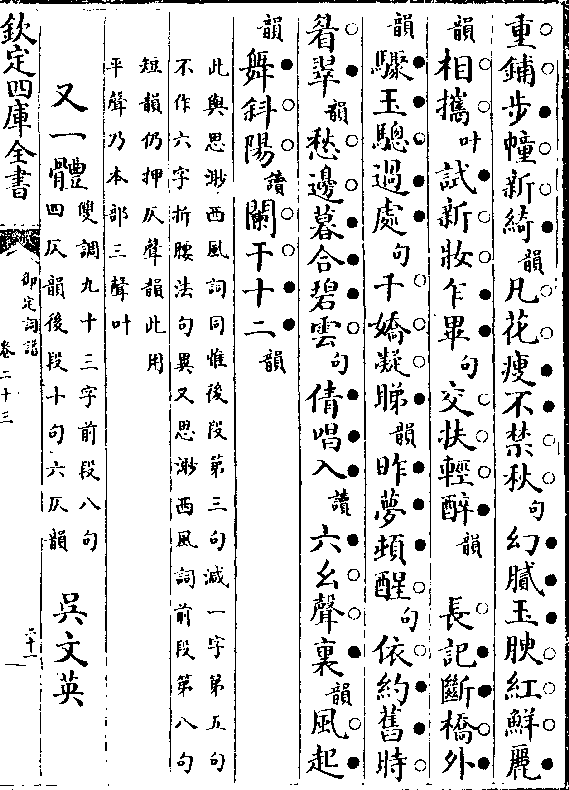 重鋪步幢新綺韻凡花瘦不禁秋句幻膩玉腴紅鮮麗
韻相攜叶試新妝乍畢句交扶輕醉韻　長記斷橋外
韻驟玉驄過處句千嬌凝睇韻昨夢頓醒句依約舊時
眉翠韻愁邊暮合碧雲句倩唱入讀六幺聲裏韻風起
韻舞斜陽讀闌干十二韻
此與思渺西風詞同惟後段第三句減一字第五句
不作六字折腰法句異又思渺西風詞前段第八句
短韻仍押仄聲韻此用
平聲乃本部三聲叶
又一體 雙調九十三字前段八句
四仄韻後段十句六仄韻 吳文英
欽定四庫全書
御定詞譜
卷二十三
二十一